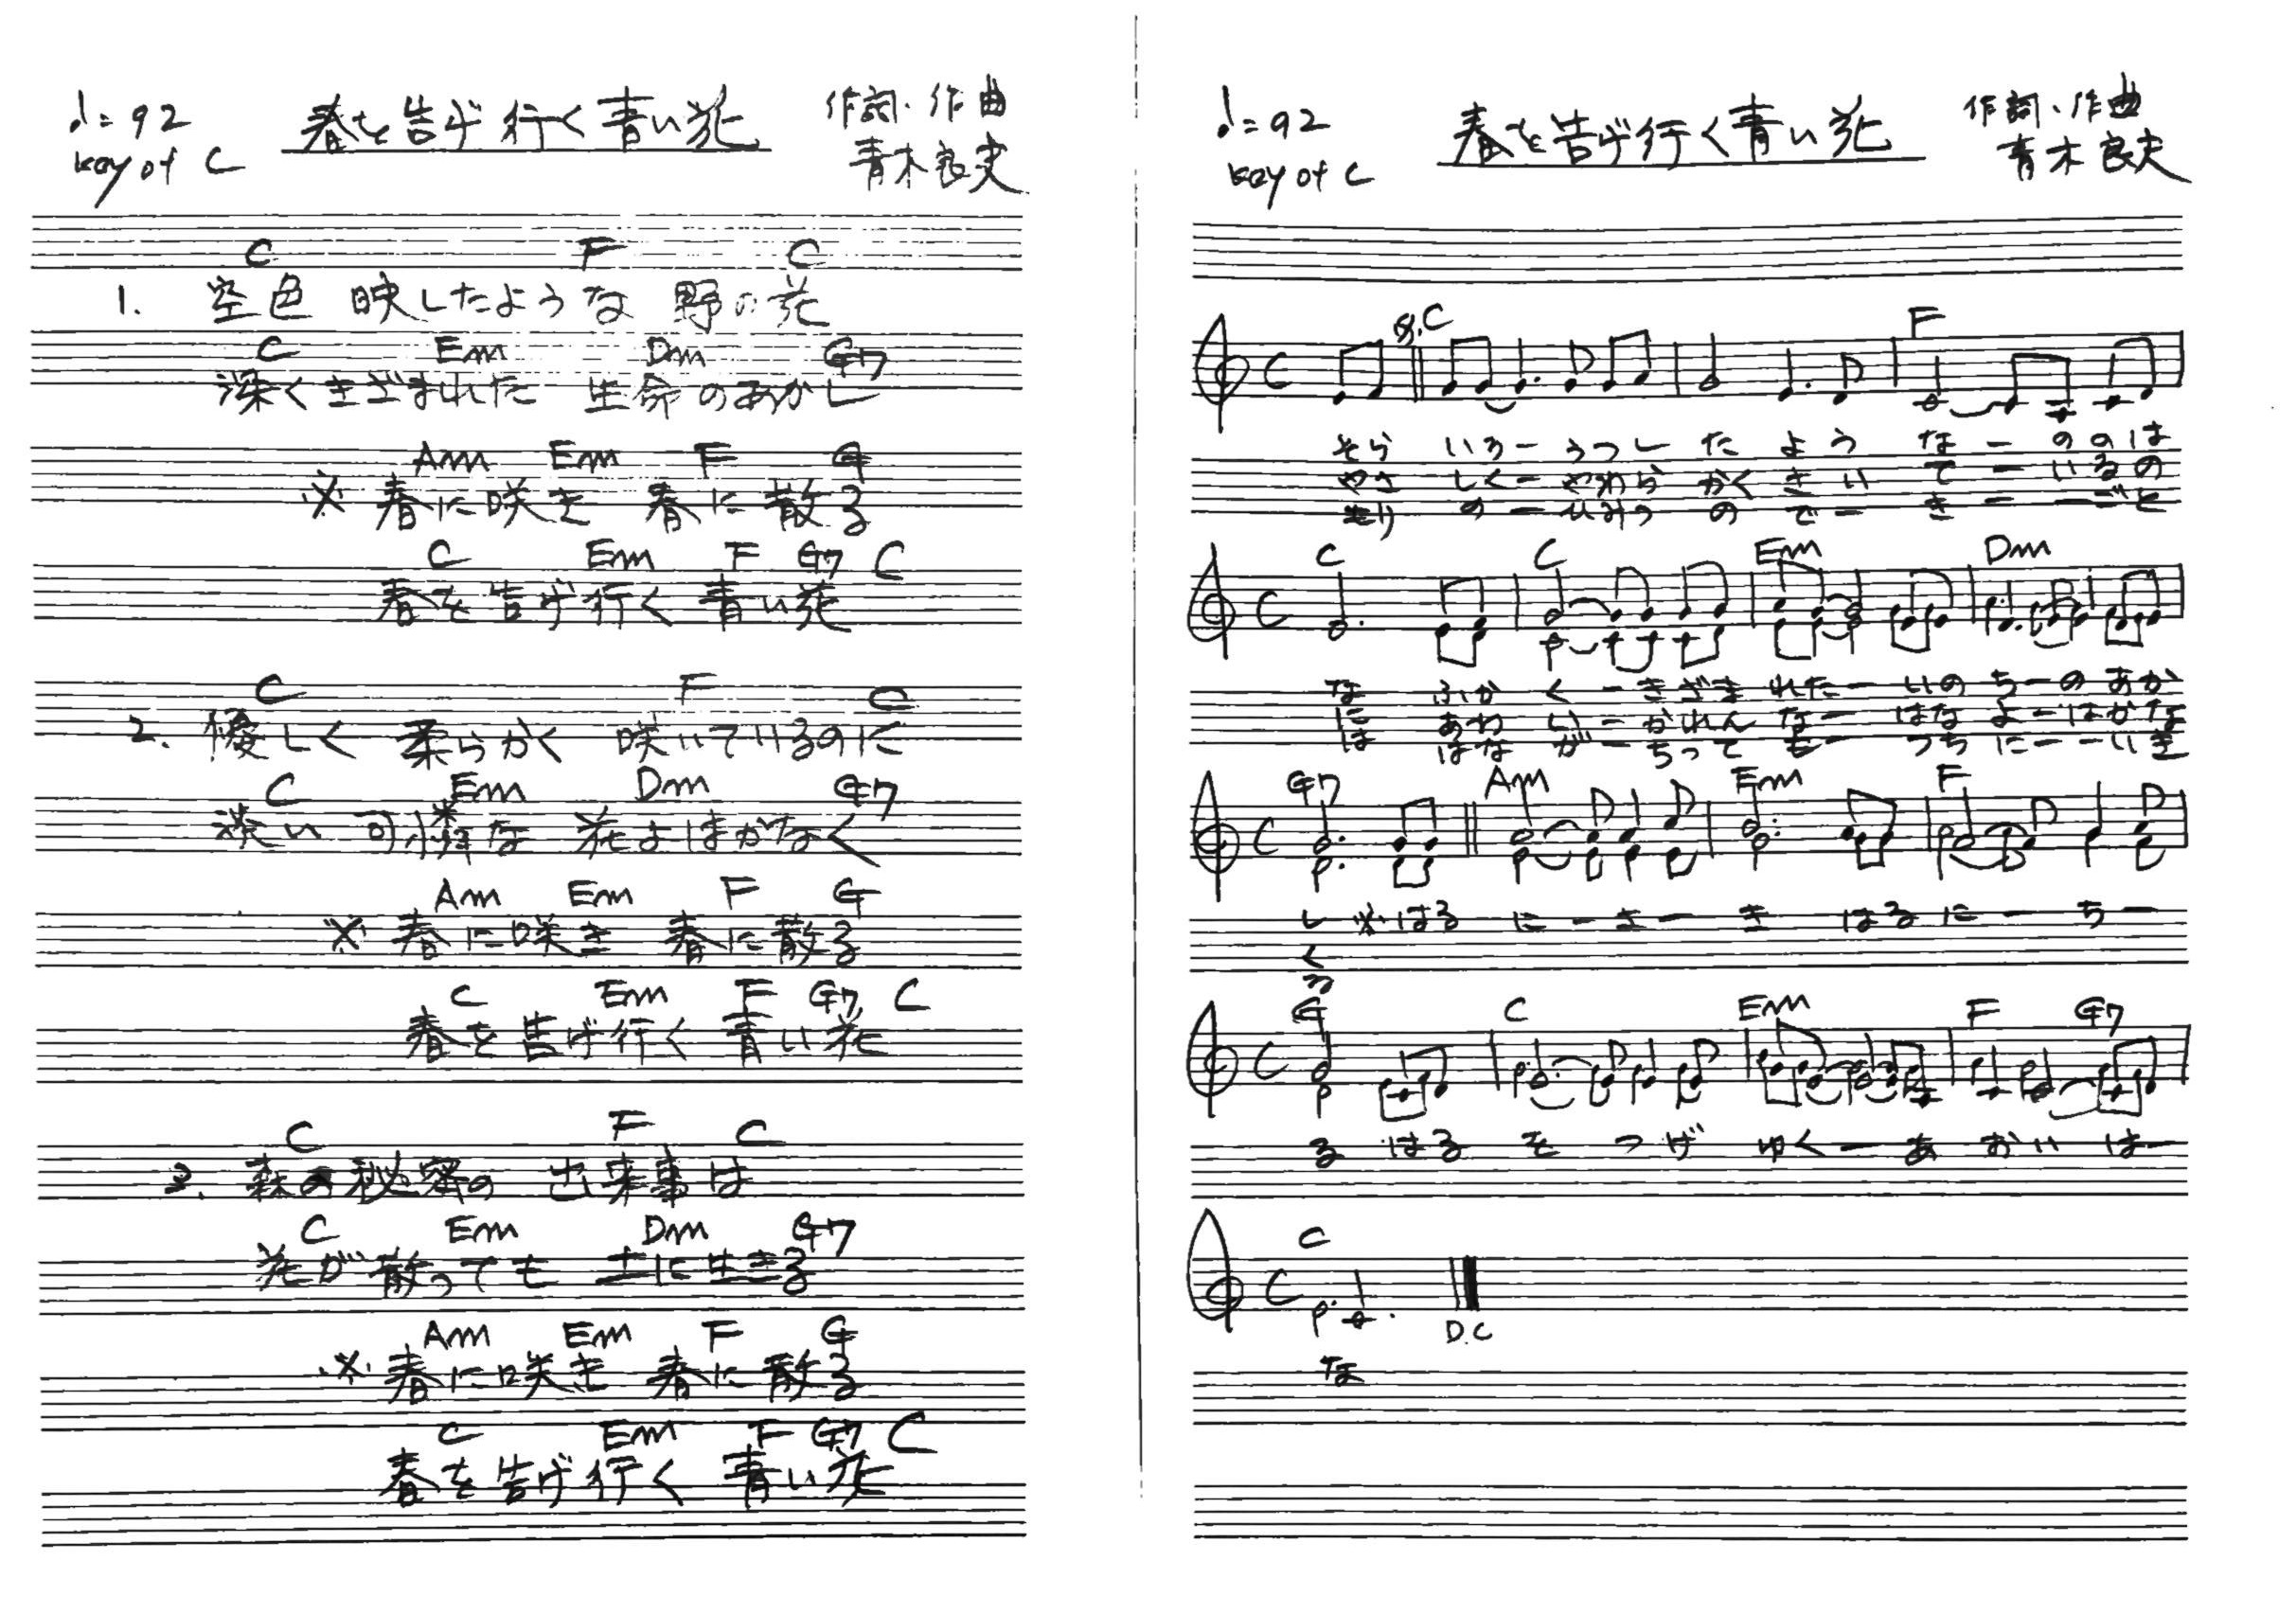 ♩=92 春を告げ行く青い花 作詞・作曲
key of C 青木良史
C F C
1. 空色 映したような 野の花
C Em Dm G7
深くきざまれた 生命のあかし
Am Em F G
※ 春に咲き 春に散る
C Em F G7 C
春を告げ行く 青い花
C F C
2. 優しく 柔らかく 咲いているのに
C Em Dm G7
淡い 可憐な 花よはかなく
Am Em F G
※ 春に咲き 春に散る
C Em F G7 C
春を告げ行く 青い花
C F C
3. 森の秘密の 出来事は
C Em Dm G7
花が散っても 土に生きる
Am Em F G
※ 春に咲き 春に散る
C Em F G7 C
春を告げ行く 青い花
♩=92 春を告げ行く青い花 作詞・作曲
key of C 青木良史
C F
そら いろー うつし た よ う な ー ののは
やさ しくー やわら かく さ い て ー いるの
もり の ー ひみつ の で ー き ー ーごと
C C Em Dm
な ふか く ー きざま れたー いの ちーの あか
に あわ い ー かれん なー はな よーはかな
は はな が ー ちって もー つち にーーいき
G7 Am Em F
し ※はる に ー さ ー き はる に ー ち ー
く
る
G C Em F G7
る はる を つ げ ゆく ー あ おい は ー
C
D.C
な